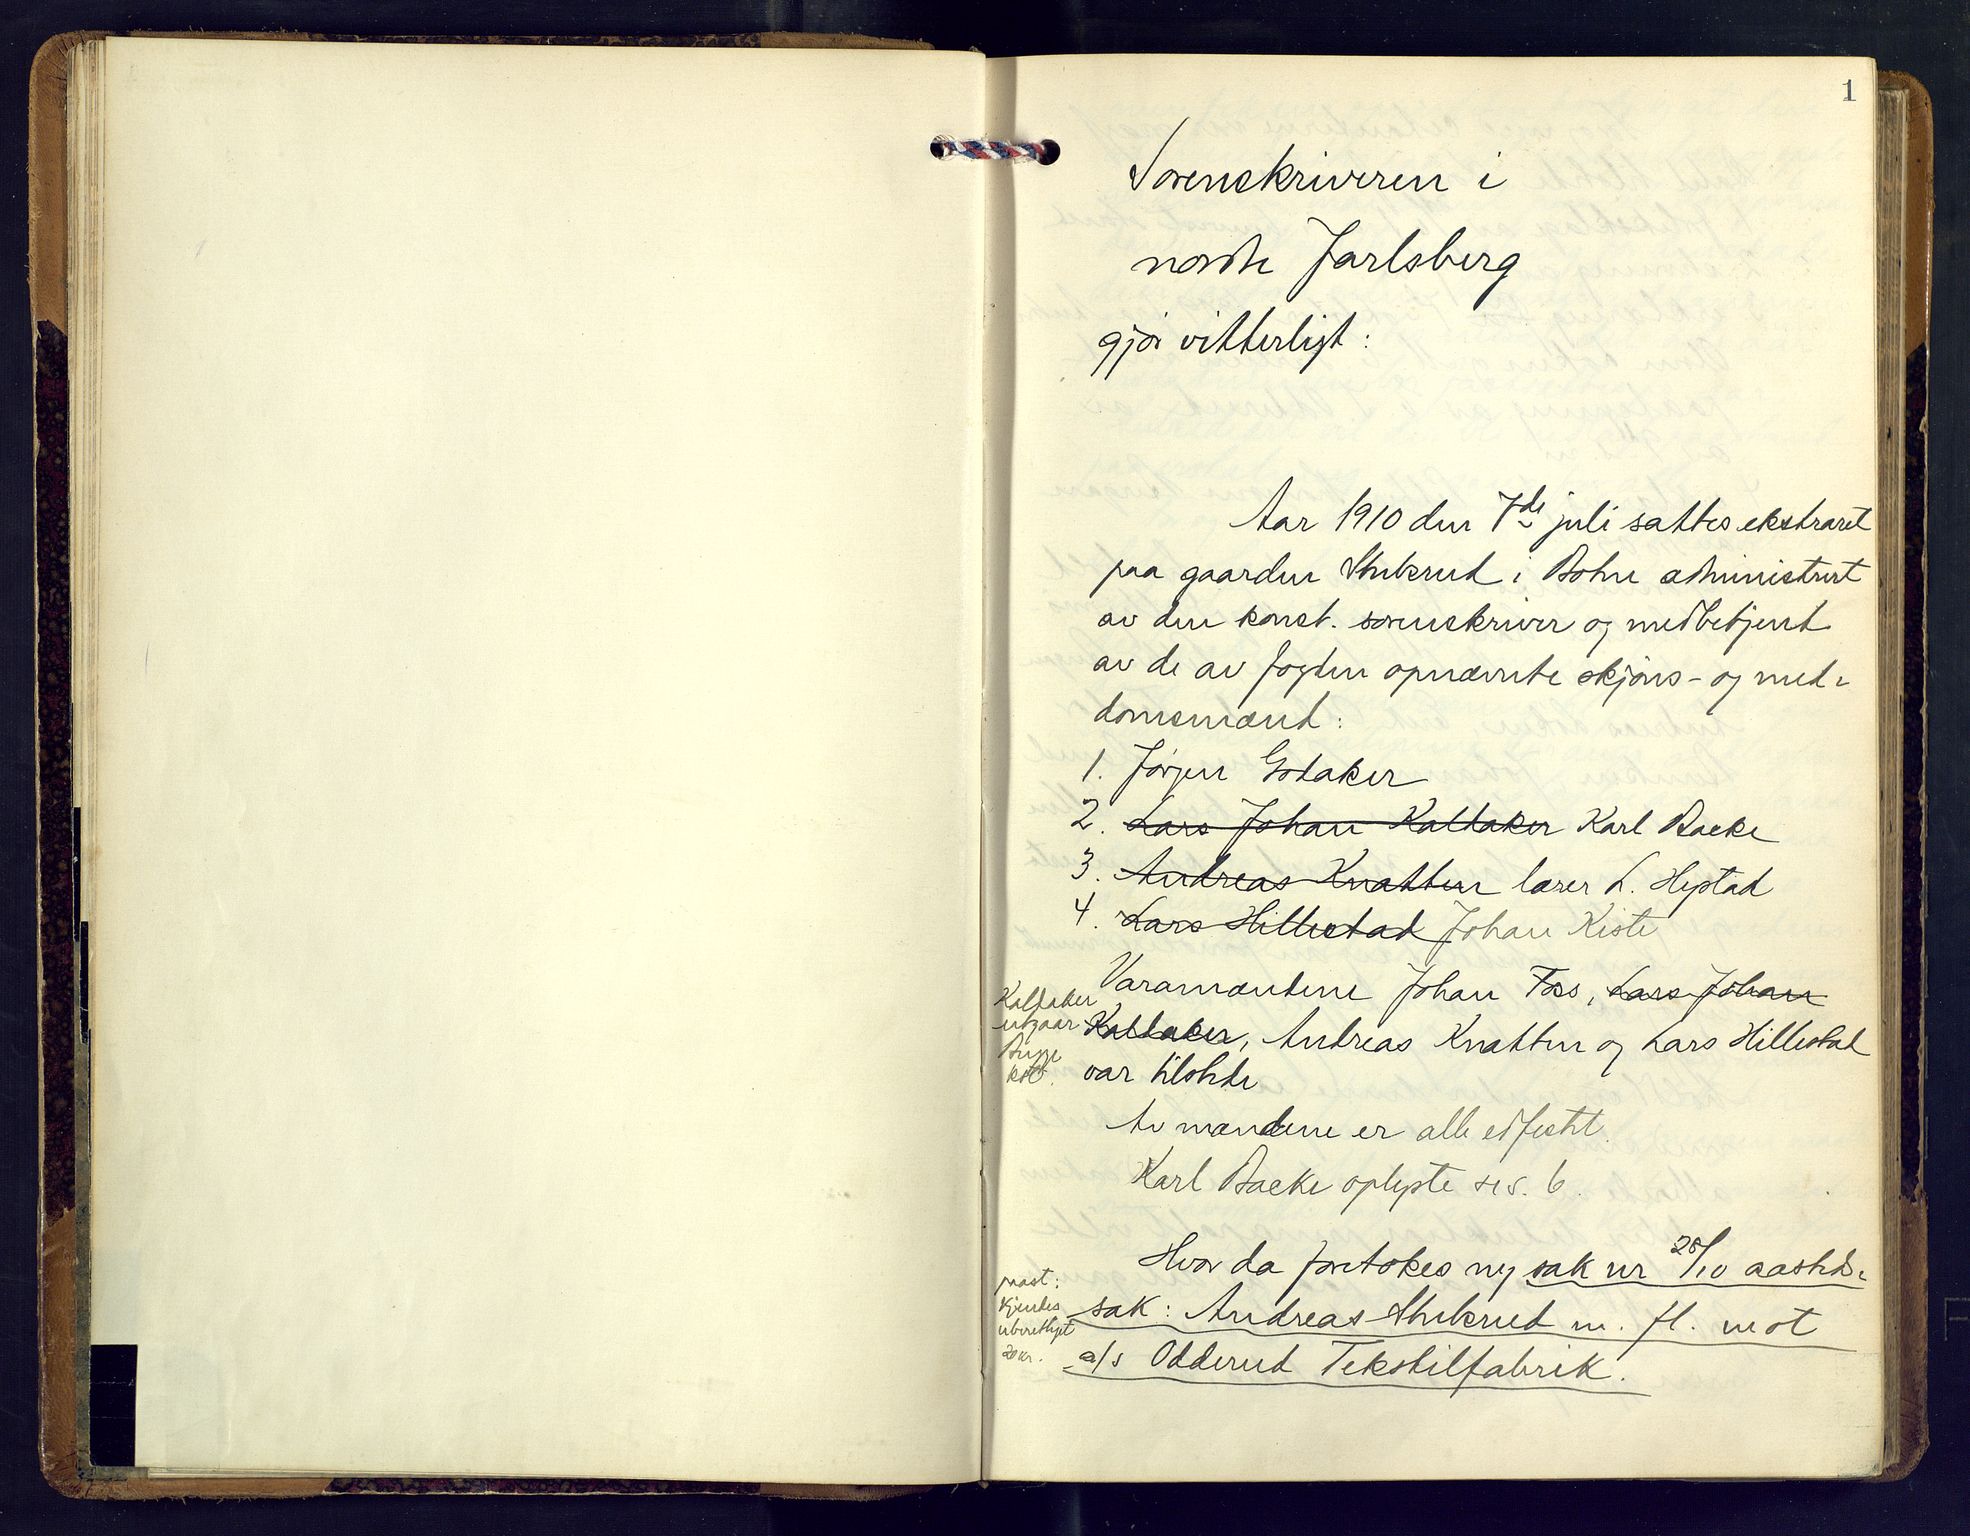 1
Sorenskriveren i
nordre Jarlsberg
gjør vitterligt:
Aar 1910 den 7de juli sattes ekstraret
paa gaarden Stubsrud i Botne administrert
av den konst. sorenskriver og medbetjent
av de av fogden opnævnte skjøns- og med-
domsmænd:
1. Jørgen Godaker
2. Lars Johan Kaldaker Karl Backe
3. Andreas Knatten lærer L. Hegstad
4. Lars Hillestad Johan Kiste
Varamændene Johan Foss, Lars Johan
Kaldaker, Andreas Knatten og Lars Hillestad
var tilstede
Kaldaker
utgaar
Av mændene er alle edfæstet.
Karl Backe oplyste
Hvor da foretokes ny sak nr 28/10 aasteds-
sak: Andreas Stubsrud m. fl. mot
a/s Odderud Tekstilfabrik.
paast:
kjendes
uberettiget
20 kr.